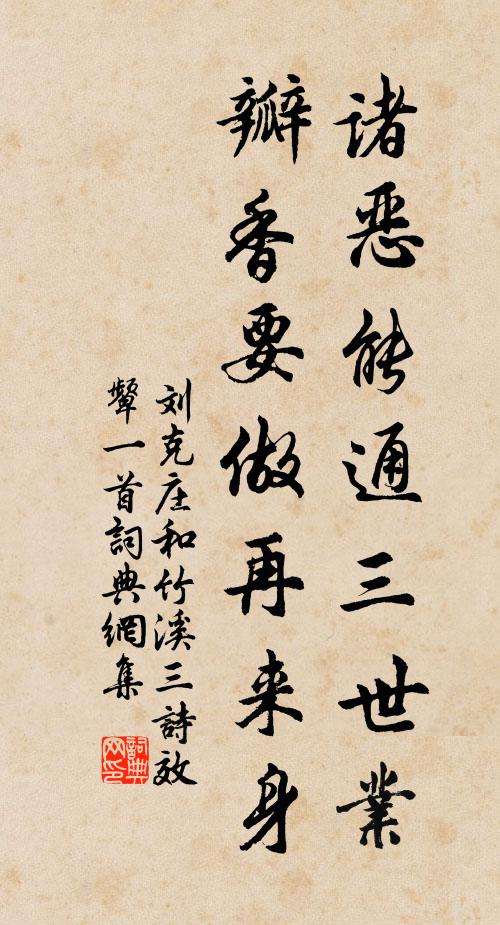 诸恶能通三世業
瓣香要做再来身
刘克庄和竹溪三詩效
颦一首詞典網集
詞典网印